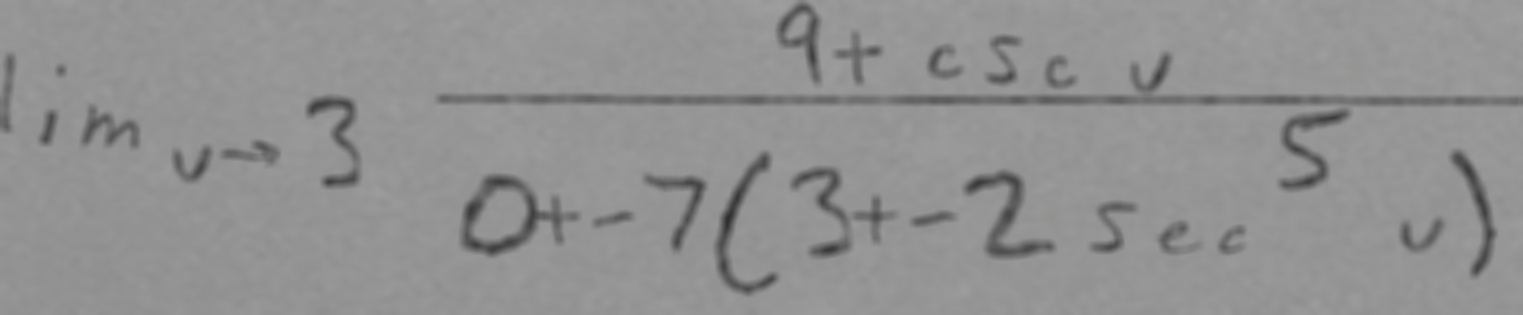 \lim_{v \to 3} \frac{9 + \csc v}{0 + -7(3 + -2 \sec^5 v)}